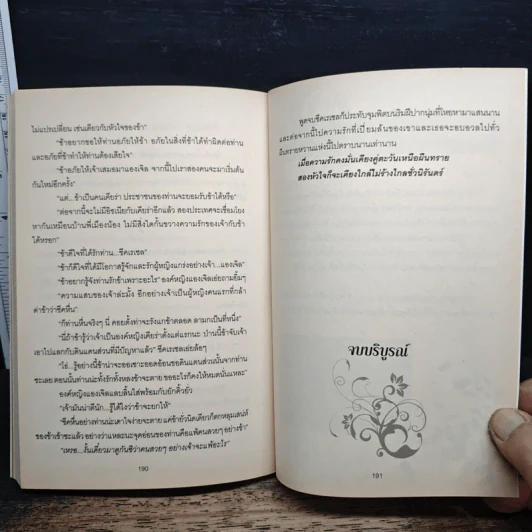 ไม่แปรเปลี่ยน เช่นเดียวกับหัวใจของข้า"
"ข้าอยากขอให้ท่านอภัยให้ข้า อภัยในสิ่งที่ข้าได้ทำผิดต่อท่าน
และอภัยที่ข้าทำให้ท่านต้องเสียใจ"
"ข้าอภัยให้เจ้าเสมอมาแองเจิล จากนี้ไปเราสองคนจะมาเริ่มต้น
กันใหม่อีกครั้ง"
"แต่...ข้าเป็นคนเคียร่า ประชาชนของท่านจะยอมรับข้าได้หรือ"
"ต่อจากนี้จะไม่มีอิซเนียกับเคียร่าอีกแล้ว สองประเทศจะเชื่อมโยง
หากันเหมือนบ้านพี่เมืองน้อง ไม่มีสิ่งใดกั้นขวางความรักของเจ้ากับข้า
ได้หรอก"
"ข้าดีใจที่ได้รักท่าน...ชีคเรเชล"
"ข้าก็ดีใจที่ได้มีโอกาสรู้จักและรักผู้หญิงแกร่งอย่างเจ้า...แองเจิล"
"ข้าอยากรู้จังท่านรักข้าเพราะอะไร" องค์หญิงแองเจิลเอ่ยถามยิ้มๆ
"ความแสบของเจ้าล่ะมั้ง อีกอย่างเจ้าเป็นผู้หญิงคนแรกที่กล้า
ด่าข้าว่าชีคหื่น"
"ก็ท่านหื่นจริงๆ นี่ คอยตั้งท่าจะรังแกข้าตลอด ลามกเป็นที่หนึ่ง"
"นี่ถ้าข้ารู้ว่าเจ้าเป็นองค์หญิงเคียร่าตั้งแต่แรกนะ ป่านนี้ข้าจับเจ้า
เอาไปแลกกับดินแดนส่วนที่มีปัญหาแล้ว" ชีคเรเชลเย่ยล้อๆ
องค์หญิงแองเจิลแลบลิ้นใส่พร้อมกับยักคิ้วยั่ว
"เจ้ามันน่าตีนัก...รู้ได้ไงว่าข้าจะยกให้"
190
พูดจบชีคเรเชลก็ประทับจุมพิตบนริมฝีปากนุ่มที่โหยหามาแสนนาน
และต่อจากนี้ไปความรักที่เปี่ยมล้นของเขาและเธอจะอบอวลไปทั่ว
ผืนทรายหวานแห่งนี้ไปตราบนานเท่านาน
เมื่อความรักคงมั่นเคียงคู่ตะวันเหนือผืนทราย
สองหัวใจก็จะเคียงใกล้ไม่ร้างไกลชั่วนิรันดร์
จบบริบูรณ์
191